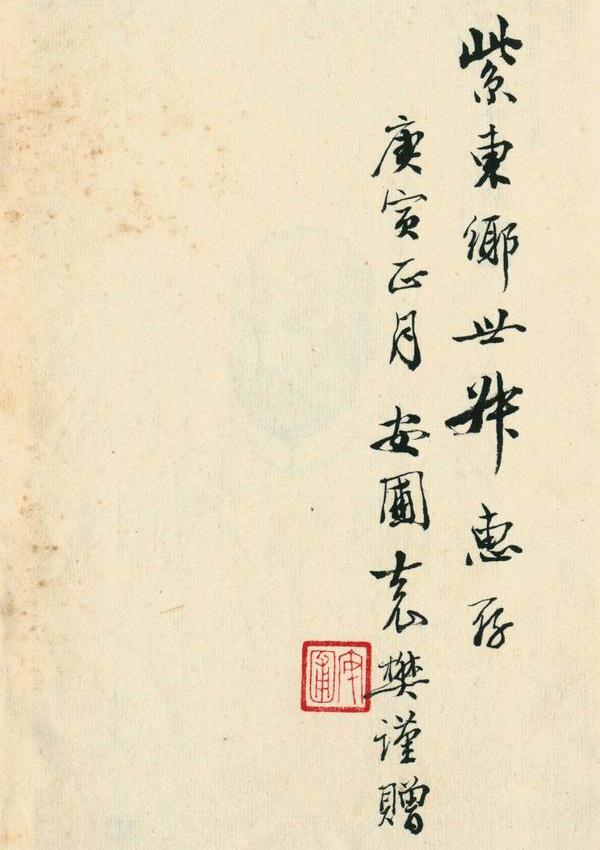 紫東鄉世升惠存
庚寅正月安圃袁樊謹贈
安圃